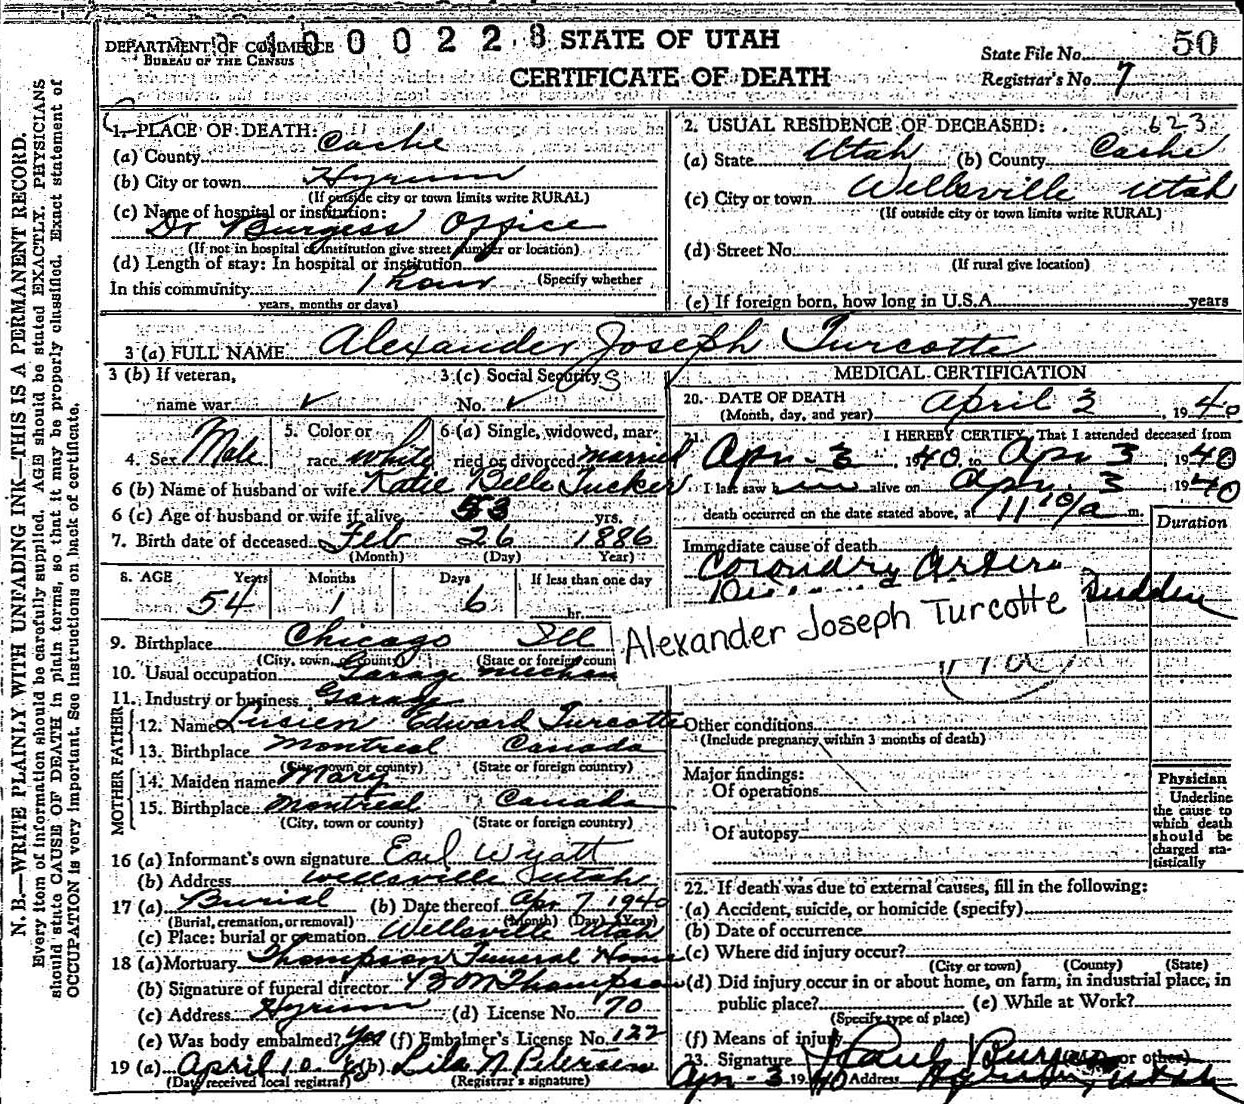 N. B.—WRITE PLAINLY WITH UNFADING INK—THIS IS A PERMANENT RECORD.
Every item of information should be carefully supplied. AGE should be stated EXACTLY. PHYSICIANS
should state CAUSE OF DEATH in plain terms, so that it may be properly classified. Exact statement of
OCCUPATION is very important. See instructions on back of certificate.
DEPARTMENT OF COMMERCE
BUREAU OF THE CENSUS
0 0 2 2 8
STATE OF UTAH
CERTIFICATE OF DEATH
State File No. 50
Registrar's No. 7
1. PLACE OF DEATH:
(a) County Cache
(b) City or town Hyrum
(If outside city or town limits write RURAL)
(c) Name of hospital or institution:
Dr Burgess Office
(If not in hospital or institution give street number or location)
(d) Length of stay: In hospital or institution
In this community 1 hour (Specify whether
years, months or days)
2. USUAL RESIDENCE OF DECEASED: 623
(a) State Utah (b) County Cache
(c) City or town Wellsville Utah
(If outside city or town limits write RURAL)
(d) Street No.
(If rural give location)
(e) If foreign born, how long in U.S.A. years
3 (a) FULL NAME Alexander Joseph Turcotte
3 (b) If veteran,
name war
3 (c) Social Security
No.
4. Sex Male
5. Color or
race White
6 (a) Single, widowed, mar-
ried or divorced married
6 (b) Name of husband or wife Katie Belle Tucker
6 (c) Age of husband or wife if alive 53 yrs.
7. Birth date of deceased Feb 26 1886
(Month) (Day) Year)
8. AGE Years Months Days If less than one day
54 1 6 hr.
9. Birthplace Chicago Ill
(City, town, county) (State or foreign coun
10. Usual occupation Garage mechan
11. Industry or business Garage
FATHER
12. Name Lusien Edward Turcotte
13. Birthplace Montreal Canada
(City, town or county) (State or foreign country)
MOTHER
14. Maiden name Mary
15. Birthplace Montreal Canada
(City, town or county) (State or foreign country)
16 (a) Informant's own signature Earl Wyatt
(b) Address Wellsville Utah
17 (a) Burial (b) Date thereof Apr 7 1940
(Burial, cremation, or removal) (Month) (Day) (Year)
(c) Place: burial or cremation Wellsville Utah
18 (a) Mortuary Thompson Funeral Home
(b) Signature of funeral director B M Thompson
(c) Address Hyrum (d) License No. 70
(e) Was body embalmed? Yes (f) Embalmer's License No. 122
19 (a) April 10 (b) Lila N Petersen
(Date received local registrar) (Registrar's signature)
MEDICAL CERTIFICATION
20. DATE OF DEATH
(Month, day, and year) April 3, 1940
21. I HEREBY CERTIFY, That I attended deceased from
Apr - 3, 1940 to Apr 3, 1940
I last saw him alive on Apr. 3 1940
death occurred on the date stated above, at 11 10/a m.
Duration
Immediate cause of death
Coronary Artery
Sudden
Alexander Joseph Turcotte
Other conditions
(Include pregnancy within 3 months of death)
Major findings:
Of operations
Of autopsy
Physician
Underline
the cause to
which death
should be
charged sta-
tistically
22. If death was due to external causes, fill in the following:
(a) Accident, suicide, or homicide (specify)
(b) Date of occurrence
(c) Where did injury occur?
(City or town) (County) (State)
(d) Did injury occur in or about home, on farm, in industrial place, in
public place? (e) While at Work?
(Specify type of place)
(f) Means of injury
23. Signature Paul Burgess or other)
Apr - 3 1940 Address Hyrum, Utah